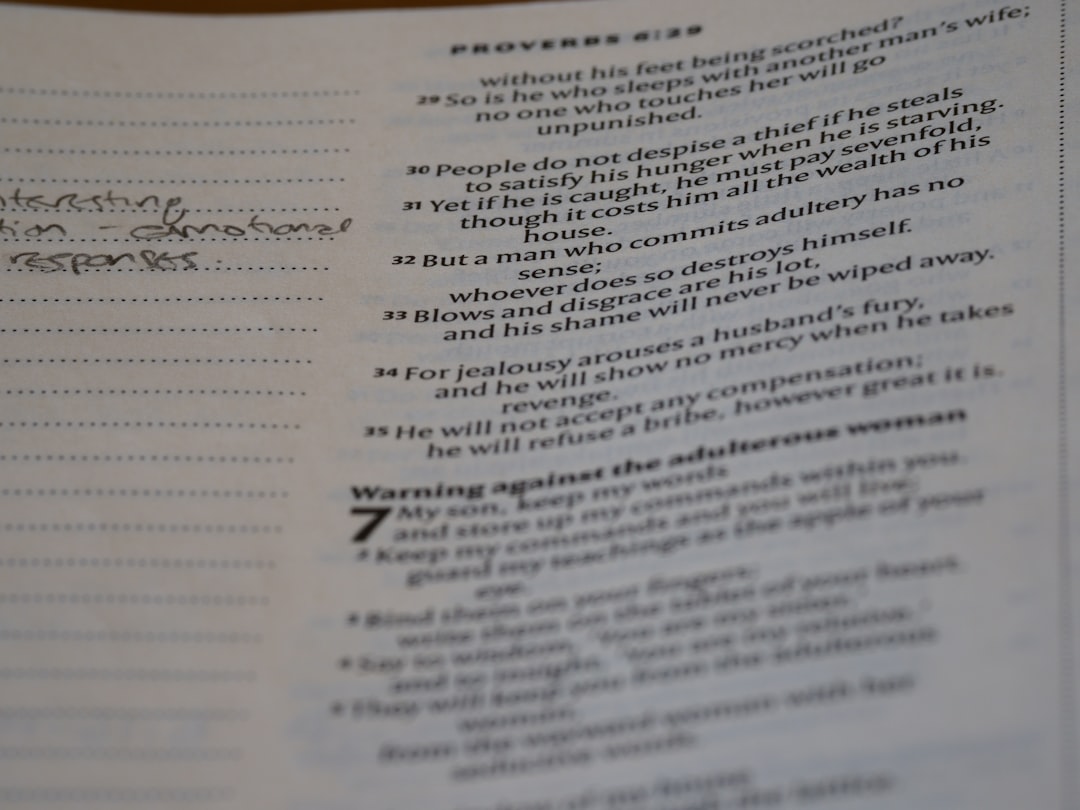 PROVERBS 6:29
without his feet being scorched?
29 So is he who sleeps with another man's wife;
no one who touches her will go
unpunished.
30 People do not despise a thief if he steals
to satisfy his hunger when he is starving.
31 Yet if he is caught, he must pay sevenfold,
though it costs him all the wealth of his
house.
32 But a man who commits adultery has no
sense;
whoever does so destroys himself.
33 Blows and disgrace are his lot,
and his shame will never be wiped away.
34 For jealousy arouses a husband's fury,
and he will show no mercy when he takes
revenge.
35 He will not accept any compensation;
he will refuse a bribe, however great it is.
Warning against the adulterous woman
7 My son, keep my words
and store up my commands within you.
2 Keep my commands and you will live;
guard my teachings as the apple of your
eye.
3 Bind them on your fingers;
write them on the tablet of your heart.
4 Say to wisdom, "You are my sister,"
and to insight, "You are my relative."
5 They will keep you from the adulterous
woman,
from the wayward woman with her
seductive words.
nteresting
tion - emotional
responses